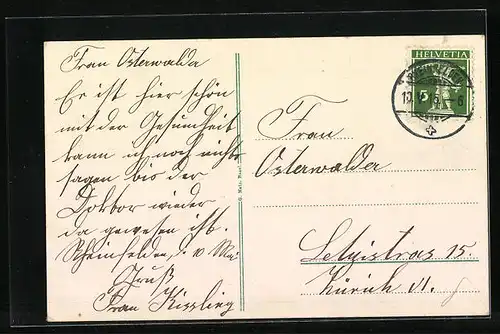 Frau Osterwalda
Es ist hier schön
mit der Gesundheit
kann ich noch nichts
sagen bis der
Doktor wieder
da gewesen ist.
Rheinfelden, d. 10 Mai
Gruß
Frau Kissling
HELVETIA
5
Frau
Osterwalder
Letzistras 15
Zürich VI.